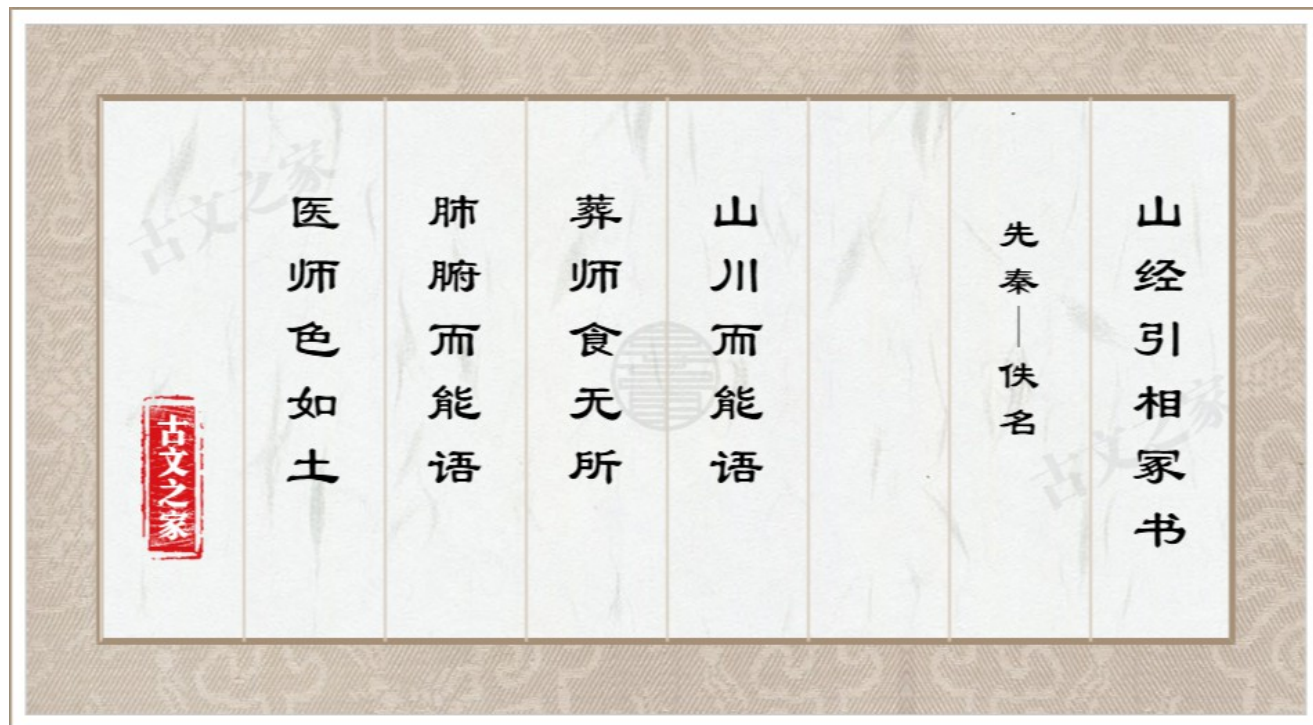 山经引相冢书
先秦—佚名
山川而能语
葬师食无所
肺腑而能语
医师色如土
古文之家
古文之家
古文之家